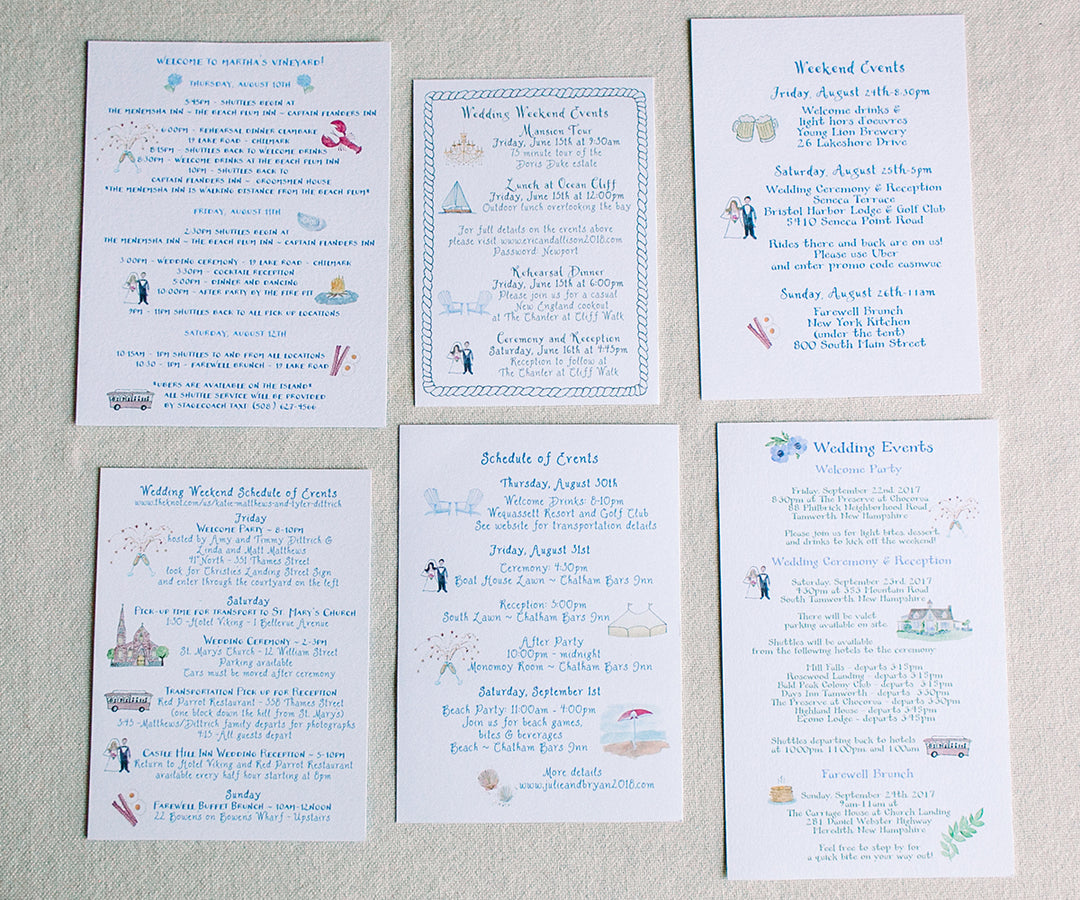 WELCOME TO MARTHA'S VINEYARD!
THURSDAY, AUGUST 10TH
5:45PM - SHUTTLES BEGIN AT
THE MENEMSHA INN ~ THE BEACH PLUM INN ~ CAPTAIN FLANDERS INN
6:00PM - REHEARSAL DINNER CLAMBAKE
19 LAKE ROAD - CHILMARK
8:15PM - SHUTTLES BACK TO WELCOME DRINKS
8:30PM - WELCOME DRINKS AT THE BEACH PLUM INN
10PM - SHUTTLES BACK TO
CAPTAIN FLANDERS INN ~ GROOMSMEN HOUSE
*THE MENEMSHA INN IS WALKING DISTANCE FROM THE BEACH PLUM*
FRIDAY, AUGUST 11TH
2:30PM SHUTTLES BEGIN AT
THE MENEMSHA INN ~ THE BEACH PLUM INN ~ CAPTAIN FLANDERS INN
3:00PM - WEDDING CEREMONY - 19 LAKE ROAD - CHILMARK
3:30PM - COCKTAIL RECEPTION
5:00PM - DINNER AND DANCING
10:00PM - AFTER PARTY BY THE FIRE PIT
9PM - 11PM SHUTTLES BACK TO ALL PICK UP LOCATIONS
SATURDAY, AUGUST 12TH
10:15AM - 1PM SHUTTLES TO AND FROM ALL LOCATIONS
10:30 - 1PM - FAREWELL BRUNCH - 19 LAKE ROAD
*UBERS ARE AVAILABLE ON THE ISLAND*
ALL SHUTTLE SERVICE WILL BE PROVIDED
BY STAGECOACH TAXI: (508) 627-4566
Wedding Weekend Events
Mansion Tour
Friday, June 15th at 9:30am
75 minute tour of the
Doris Duke estate
Lunch at Ocean Cliff
Friday, June 15th at 12:00pm
Outdoor lunch overlooking the bay
For full details on the events above
please visit www.ericandallison2018.com
Password: Newport
Rehearsal Dinner
Friday, June 15th at 6:00pm
Please join us for a casual
New England cookout
at The Chanler at Cliff Walk
Ceremony and Reception
Saturday, June 16th at 4:45pm
Reception to follow at
The Chanler at Cliff Walk
Weekend Events
Friday, August 24th-8:30pm
Welcome drinks &
light hors d'oeuvres
Young Lion Brewery
26 Lakeshore Drive
Saturday, August 25th-5pm
Wedding Ceremony & Reception
Seneca Terrace
Bristol Harbor Lodge & Golf Club
5410 Seneca Point Road
Rides there and back are on us!
Please use Uber
and enter promo code
Sunday, August 26th-11am
Farewell Brunch
New York Kitchen
(under the tent)
800 South Main Street
Wedding Weekend Schedule of Events
www.theknot.com/us/katie-matthews-and-tyler-dittrich
Friday
Welcome Party ~ 8-10pm
hosted by Amy and Tommy Dittrich &
Linda and Matt Matthews
41° North - 351 Thames Street
look for Christies Landing Street Sign
and enter through the courtyard on the left
Saturday
Pick-up time for transport to St. Mary's Church
1:30 -Hotel Viking - 1 Bellevue Avenue
Wedding Ceremony ~ 2-3pm
St. Mary's Church - 12 William Street
Parking available
Cars must be moved after ceremony
Transportation Pick up for Reception
Red Parrot Restaurant - 358 Thames Street
(one block down the hill from St. Mary's)
3:45 -Matthews/Dittrich family departs for photographs
4:15 -All guests depart
Castle Hill Inn Wedding Reception ~ 5-10pm
Return to Hotel Viking and Red Parrot Restaurant
available every half hour starting at 8pm
Sunday
Farewell Buffet Brunch ~ 10am-12noon
22 Bowens on Bowens Wharf - Upstairs
Schedule of Events
Thursday, August 30th
Welcome Drinks: 8-10pm
Wequassett Resort and Golf Club
See website for transportation details
Friday, August 31st
Ceremony: 4:30pm
Boat House Lawn ~ Chatham Bars Inn
Reception: 5:00pm
South Lawn ~ Chatham Bars Inn
After Party
10:00pm - midnight
Monomoy Room ~ Chatham Bars Inn
Saturday, September 1st
Beach Party: 11:00am - 4:00pm
Join us for beach games,
bites & beverages
Beach ~ Chatham Bars Inn
More details
www.julieandbryan2018.com
Wedding Events
Welcome Party
Friday, September 22nd, 2017
8:30pm at The Preserve at Chocorua
88 Philbrick Neighborhood Road
Tamworth, New Hampshire
Please join us for light bites, dessert,
and drinks to kick off the weekend!
Wedding Ceremony & Reception
Saturday, September 23rd, 2017
4:30pm at 353 Mountain Road
South Tamworth, New Hampshire
There will be valet
parking available on site.
Shuttles will be available
from the following hotels to the ceremony:
Mill Falls - departs 3:15pm
Rosewood Landing - departs 3:15pm
Bald Peak Colony Club - departs 3:15pm
Days Inn Tamworth - departs 3:30pm
The Preserve at Chocorua - departs 3:30pm
Highland House - departs 3:45pm
Econo Lodge - departs 3:45pm
Shuttles departing back to hotels
at 10:00pm 11:00pm and 1:00am
Farewell Brunch
Sunday, September 24th, 2017
9am-11am at
The Carriage House at Church Landing
281 Daniel Webster Highway
Meredith, New Hampshire
Feel free to stop by for
a quick bite on your way out!